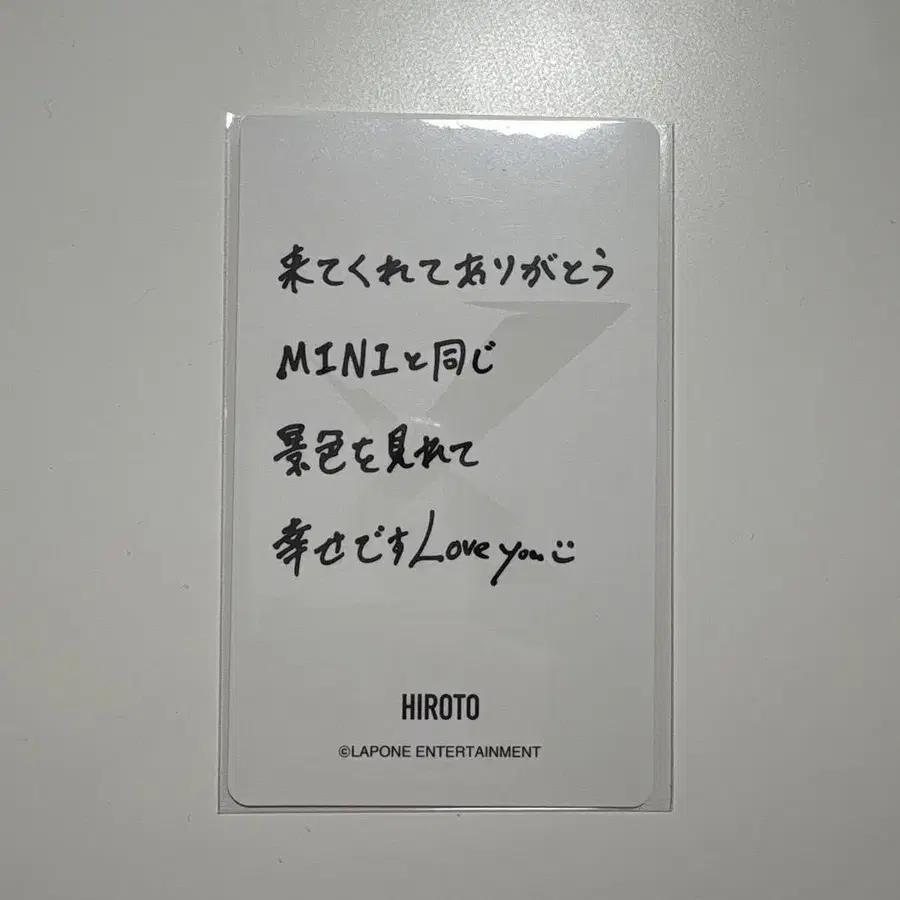 来てくれてありがとう
MINIと同じ
景色を見れて
幸せですLove you
HIROTO
©LAPONE ENTERTAINMENT